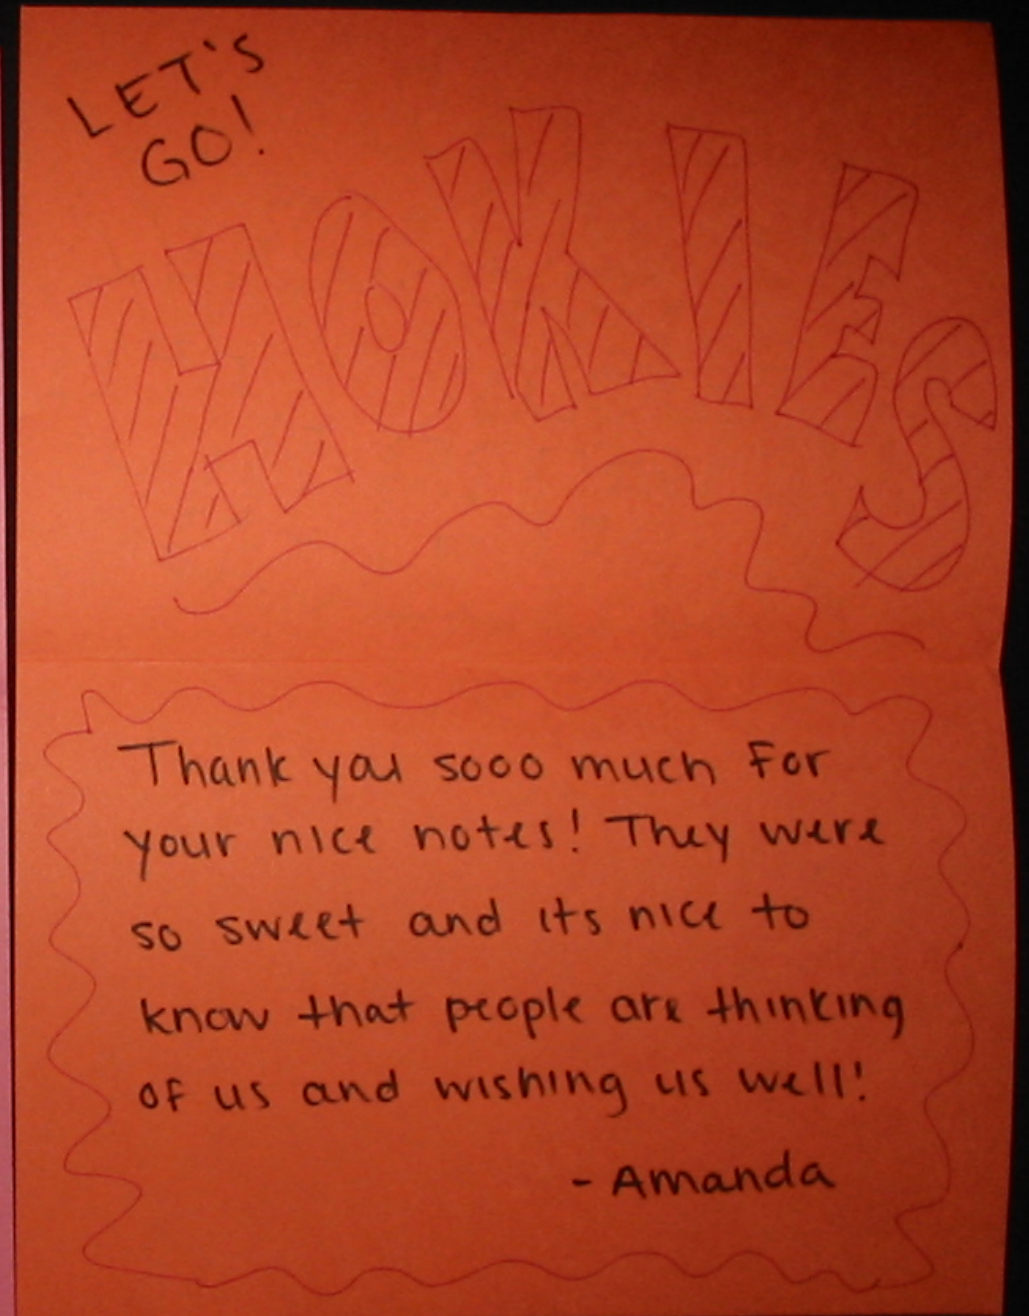 LET'S
GO!
HOKIES
Thank you sooo much for
your nice notes! They were
so sweet and its nice to
know that people are thinking
of us and wishing us well!
- Amanda